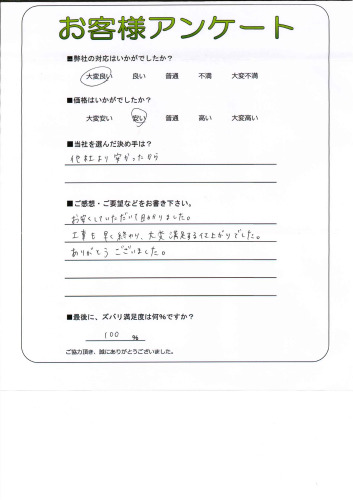 お客様アンケート
■弊社の対応はいかがでしたか?
大変良い 良い 普通 不満 大変不満
■価格はいかがでしたか?
大変安い 安い 普通 高い 大変高い
■当社を選んだ決め手は?
他社より安かったから
■ご感想・ご要望などをお書き下さい。
お安くしていただいて助かりました。
工事も早く終わり、大変満足する仕上がりでした。
ありがとうございました。
■最後に、ズバリ満足度は何%ですか?
100 %
ご協力頂き、誠にありがとうございました。